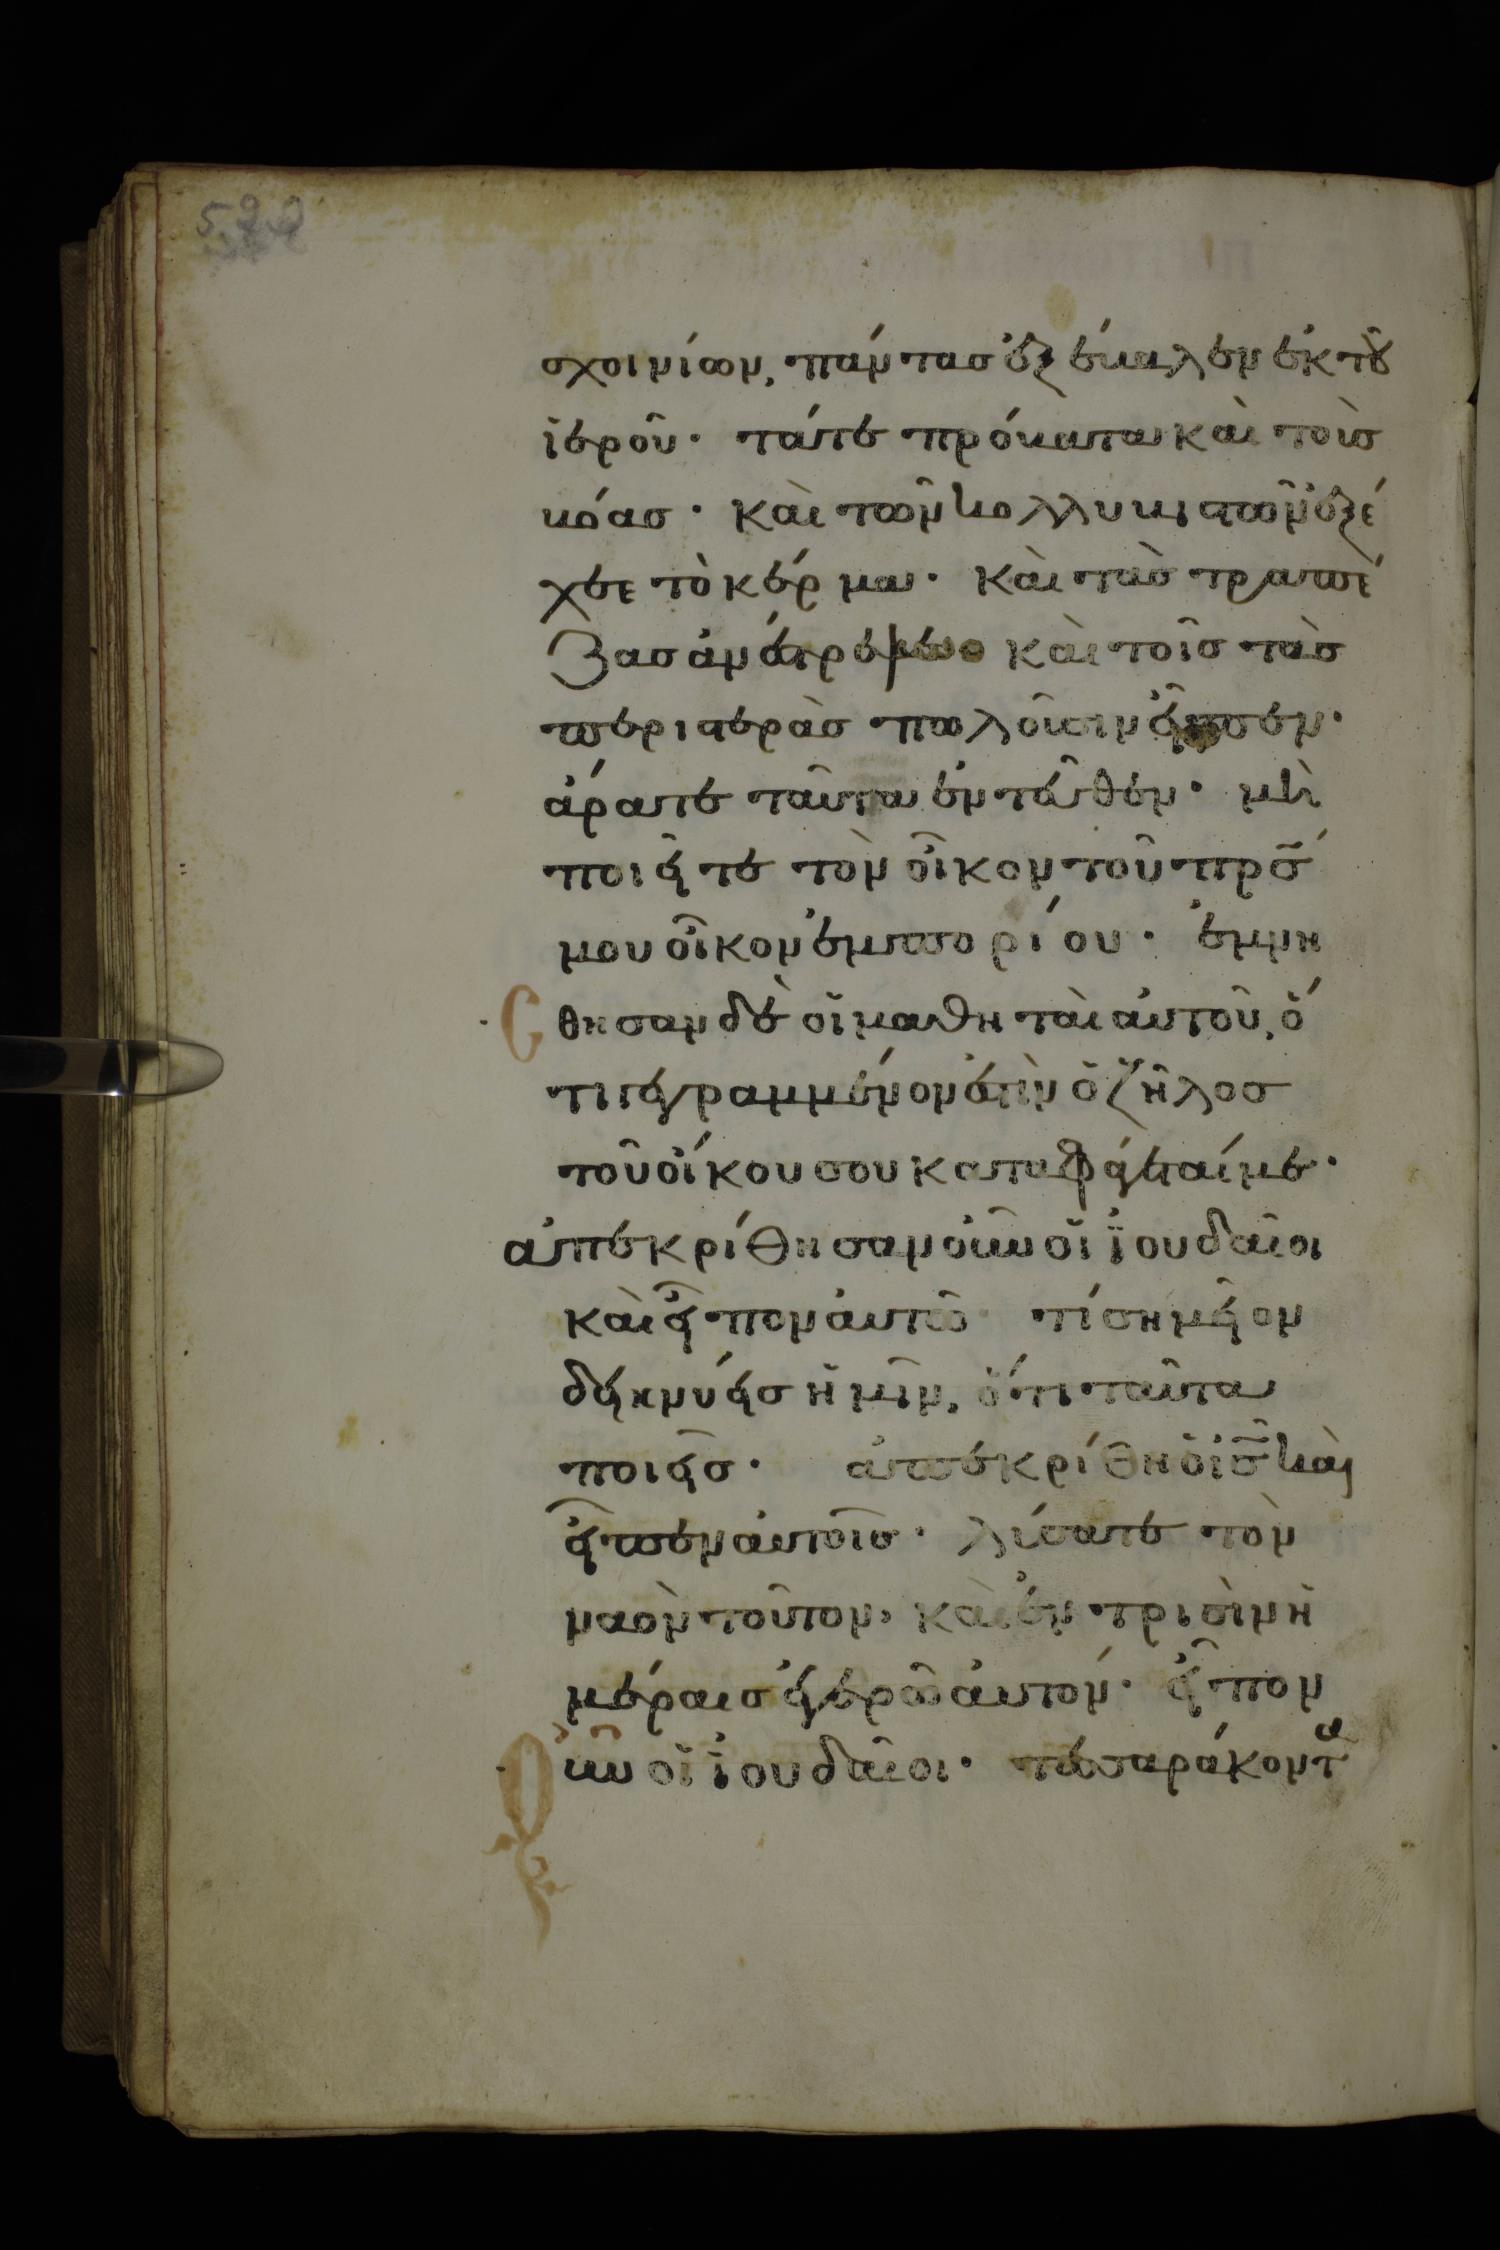 σχοινίων, πάντας ἐξέβαλεν ἐκ τȣ͂
ἱεροῦ· τάτε πρόβατα καὶ τοὺσ
βόασ· καὶ τῶν κολλυβιστῶν ἐξέ
χεε τὸ κέρμα· καὶ τὰσ τραπέ
ζασ ἀνέστρεψε καὶ τοῖσ τὰσ
περιστερὰσ πωλοῦσιν εἶπεν·
ἄρατε ταῦτα ἐντεῦθεν· μὴ
ποιεῖτε τὸν οἶκον τοῦ πρσ̅
μου οἶκον ἐμπορίου· ἐμνη
θησαν δὲ οἱ μαθηταὶ αὐτοῦ, ὅ
τι γεγραμμένον ἐστὶν ὁ ζῆλοσ
τοῦ οἴκου σου καταφάγεταί με·
ἀπεκρίθησαν οὖν οἱ ἰουδαῖοι
καὶ εἶπον αὐτῶ· τί σημεῖον
δεικνύεισ ἡμῖν, ὅτι ταῦτα
ποιεῖσ· ἀπεκρίθη ὁ ισ̅ καὶ
εἶπεν αὐτοῖσ· λύσατε τὸν
ναὸν τοῦτον, καὶ ἐν τρισὶν ἡ
μέραισ ἐγερῶ αὐτόν· εἶπον
οὖν οἱ ἰουδαῖοι· τεσσαράκοντα